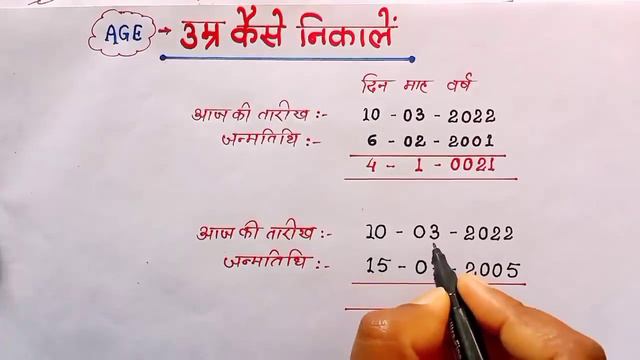 AGE → उम्र कैसे निकालें
दिन माह वर्ष
आज की तारीख :- 10 - 03 - 2022
जन्मतिथि :- 6 - 02 - 2001
4 - 1 - 0021
आज की तारीख :- 10 - 03 - 2022
जन्मतिथि :- 15 - 0 - 2005